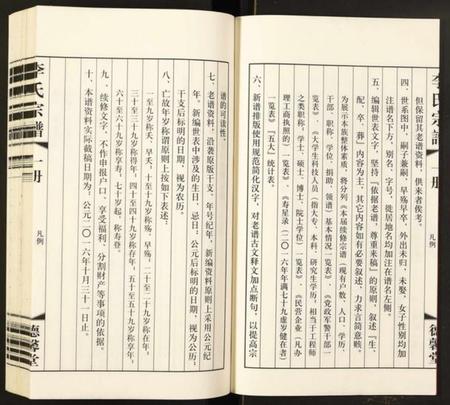 李氏宗譜
册
凡例
德馨堂
但保留其老谱资料,供来者俟考。
四、世系图中,嗣子兼嗣,早殇早卒,外出未归,未娶,女子性别均加
注谱名下方,别名、字号,徙居地名均加注在谱名左侧。
五、编辑世表文字,坚持“依据老谱,尊重来稿”的原则,叙述“生、
配、卒、葬”内容为主,其它内容如有必要叙述,力求言简意赅。
为展示本族整体素质,将分列《本届续修宗谱(现有户数、人口、学历、
干部、职称、学位、捐助、领谱)基本情况一览表》、《党政军警干部一
览表》、《大学生科技人员(指大专、本科、研究生学历,相当于工程师
之类职称,学士、硕士、博士、院士学位)一览表》、《民营企业(凡办
理工商执照的)一览表》、《寿星录(二〇一六年满七十九虚岁健在者)
一览表》“五大”统计表。
六、新谱排版使用规范简化汉字,对老谱古文释文加点断句,以提高宗
谱的可读性。
七、老谱资料,沿袭原版干支、年号纪年,新编资料原则上采用公元纪
年。新编世表中涉及的生日、忌日,公元后标明的日期,视为公历;
干支后标明的日期,视为农历。
八、亡故年岁称谓原则上按如下表述:
一至九岁称夭、早夭,十至十九岁称殇、早殇,二十至二十九岁称
三十至三十九岁称得年,四十至四十九岁称存年,五十至五十九岁称享年,
六十至六十九岁称享寿,七十岁起,称寿登。
九、续修文字,不作申报户口、享受福利、分割财产等事项的依据。
十、本谱资料实际截稿日期为:公元二〇一六年十月三十一日止。
李氏宗譜
一册
凡例
德馨堂